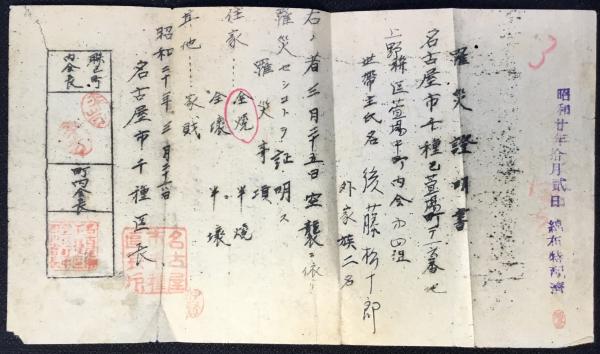 昭和廿年拾月貳日 綿布特配濟
3
罹災證明書
名古屋市千種区萱場町
上野聯区萱場中町内会 四組
世帯主氏名 後藤松十郎
外家族二名
右ノ者三月二十五日空襲ニ依リ
罹災セシコトヲ証明ス
罹災事項
住家 全燒 半燒
全壊 半壊
其他 家財
昭和二十年三月二十六日
名古屋市千種区長
聯区町内会長
町内会長